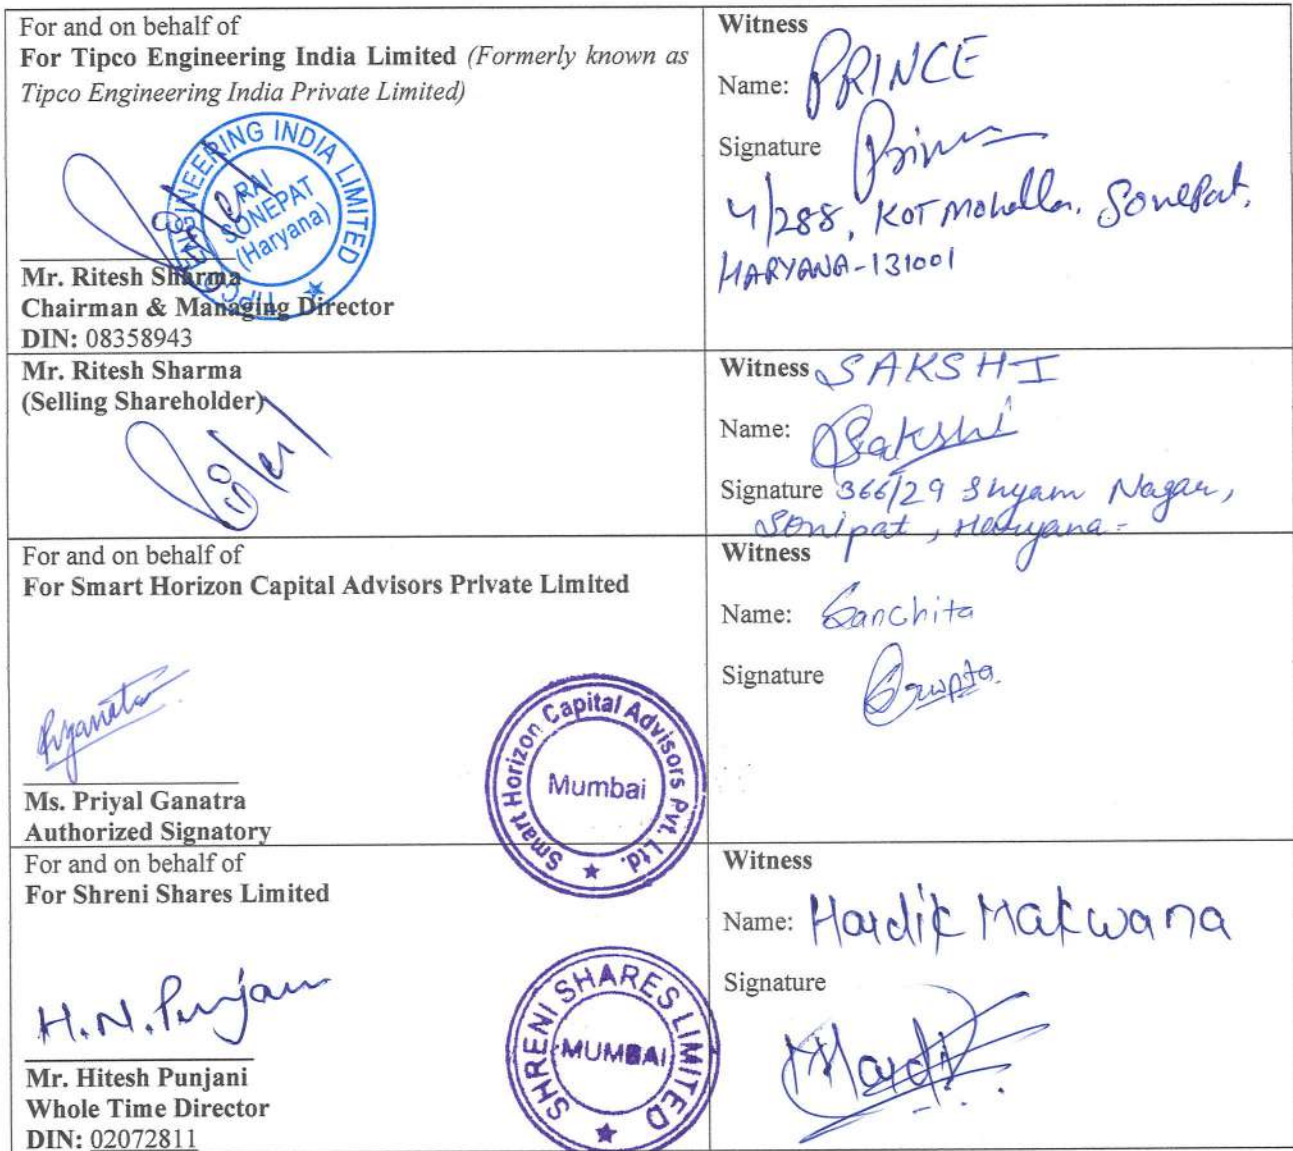 For and on behalf of
For Tipco Engineering India Limited (Formerly known as
Tipco Engineering India Private Limited)
TIPCO ENGINEERING INDIA LIMITED
RAI
SONEPAT
(Haryana)
Mr. Ritesh Sharma
Chairman & Managing Director
DIN: 08358943
Witness
Name: PRINCE
Signature Prince
4/288, KOT Mohalla, Sonepat,
HARYANA-131001
Mr. Ritesh Sharma
(Selling Shareholder)
Witness SAKSHI
Name: Sakshi
Signature 366/29 Shyam Nagar,
Sonipat, Haryana-
For and on behalf of
For Smart Horizon Capital Advisors Private Limited
Smart Horizon Capital Advisors Pvt. Ltd.
Mumbai
Ms. Priyal Ganatra
Authorized Signatory
Witness
Name: Sanchita
Signature Gupta
For and on behalf of
For Shreni Shares Limited
H.N. Punjani
SHRENI SHARES LIMITED
MUMBAI
Mr. Hitesh Punjani
Whole Time Director
DIN: 02072811
Witness
Name: Hardik Makwana
Signature
Hardik